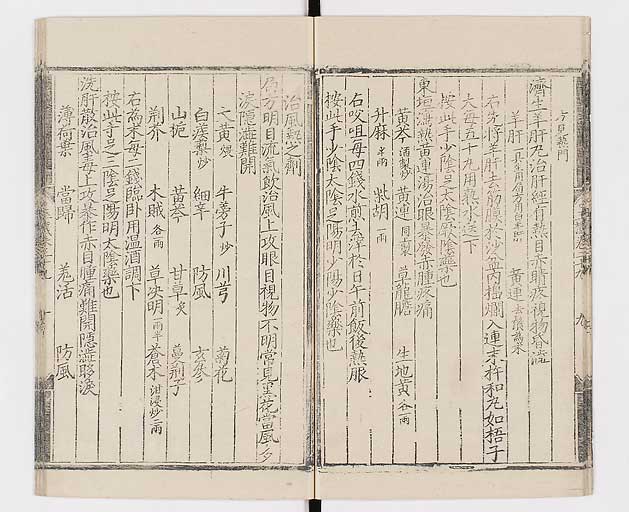 方見熱門
濟生羊肝丸治肝經有熱目赤睛疼視物昏澁
羊肝 黃連去鬚爲末
右先將羊肝去筋膜於沙盆內擂爛入連末杵和丸如梧子
大每五十丸用熱水送下
按此手少陰足太陰厥陰藥也
東垣瀉熱黃連湯治眼暴發赤腫疼痛
黃芩酒製炒 黃連同製 草龍膽 生地黃各一兩
升麻半兩 柴胡一兩
右㕮咀每四錢水煎去滓於日午前飯後熱服
按此手少陰太陰足陽明少陽少陰藥也
治風熱之劑
局方明目流氣飲治風上攻眼目視物不明常見黑花當風多
淚隱澁難開
大黃煨 牛蒡子炒 川芎 菊花
白蒺藜炒 細辛 防風 玄參
山梔 黃芩 甘草炙 蔓荊子
荊芥 木賊各兩 草決明一兩半 蒼朮泔浸炒二兩
右爲末每二錢臨臥用溫酒調下
按此手足三陰足陽明太陰藥也
洗肝散治風毒上攻暴作赤目腫痛難開隱澁眵淚
薄荷葉 當歸 羌活 防風